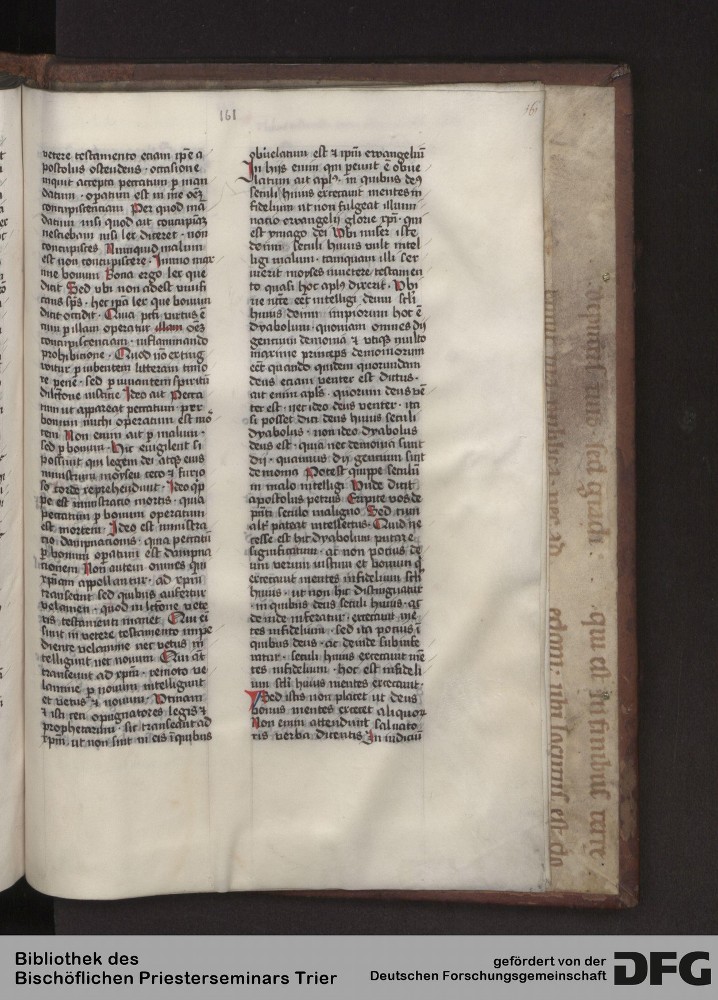 161
161
vetere testamento etiam ip̄e a
postolus ostendens · occasione
inquit accepta peccatum p man
datum · opatum est in me oēꝫ
concupiscentiam Per quod mā
datum nisi quod ait concupiam
nesciebam nisi lex diceret · non
concupisces Nunquid malum
est non concupiscere · Immo max
ime bonum Bona ergo lex que
dicit Sed vbi non adest viuifi
cans sp̄s · hec ip̄a lex que bonum
dicit occidit · Quia pcti virtus ē
cum p illam operatur illam oēꝫ
concupiscentiam · inflammando
prohibitione · Quod nō exting
witur p iubentem litteram timo
re pene · sed p iuuantem spiritū
dilc̄tione iusticie Ideo ait Pecca
tum ut appareat peccatum · per
bonum michi operatum est mor
tem Non enim ait p malum ·
sed p bonum · Hic euigilent si
possunt qui legem dei atqꝫ eius
ministrum moysen ceco et furio
so corde reprehendunt · Ideo q̄p
pe est ministracio mortis · quia
peccatum p bonum operatum
est mortem · Ideo est ministra
cio dampnacionis · quia peccatū
p bonum opatum est dampna
cionem Non autem omnes qui
xp̄iani appellantur · ad xp̄m
transeunt sed quibus aufertur
velamen · quod in lc̄tione vete
ris testamenti manet Qui eī
sunt in vetere testamento impe
diente velamine nec vetus in
telligunt nec novum Qui aūt
transeunt ad xp̄m · remoto ve
lamine p novum intelligunt
et vetus et novum · Vtinam
et isti ceci opugnatores legis et
prophetarum · sic transeant ad
xp̄m ut non sint in eis ī quibus
obuelatum est et ip̄m ewangeliū
In hijs enim qui pereunt ē obue
latum ait apl̄s · in quibus deꝰ
seculi huius excecauit mentes in
fidelium ut non fulgeat illumi
natio ewangelij glorie xp̄i · qui
est ymago dei Vbi miser iste
deum seculi huius vult intel
ligi malum · tamquam illi ser
uierit moyses in vetere testamen
to quasi hoc apl̄s dixerit · Vbi
ne nc̄ce est intelligi deum scl̄i
huius deum impiorum hoc ē
dyabolum · quoniam omnes dij
gencium demonia et vtiqꝫ multo
maxime princeps demoniorum
eēt quando quidem quorundam
deus etiam venter est dictus ·
ait enim apl̄s · quorum deus vē
ter est · nec ideo deus venter · ita
si posset dici deus huius seculi
dyabolus · non ideo dyabolus
deus est · quia nec demonia sunt
dij · quamuis dij gencium sint
demonia Potest quippe seculum
in malo intelligi Vnde dicit
apostolus petrus Eripite vos de
pn̄ti seculo maligno Sed cum
alit̄ pateat intellectus · Quid ne
cesse est hic dyabolum putare
significatum · ac non pocius de
um verum iustum et bonum q
excecauit mentes infidelium scl̄i
huius · ut non hic distinguatur
in quibus deus seculi huius · ac
deinde inferatur · excecauit mē
tes infidelium · sed ita pocius ī
quibus deus · ac deinde subinfe
ratur · seculi huius excecauit mē
tes infidelium · hoc est infideli
um scl̄i huius mentes excecauit
Sed istis non placet ut deus
bonus mentes excecet aliquorū
Non enim attendunt saluato
ris verba dicentis In iudiciū
Bibliothek des
Bischöflichen Priesterseminars Trier
gefördert von der
Deutschen Forschungsgemeinschaft
DFG